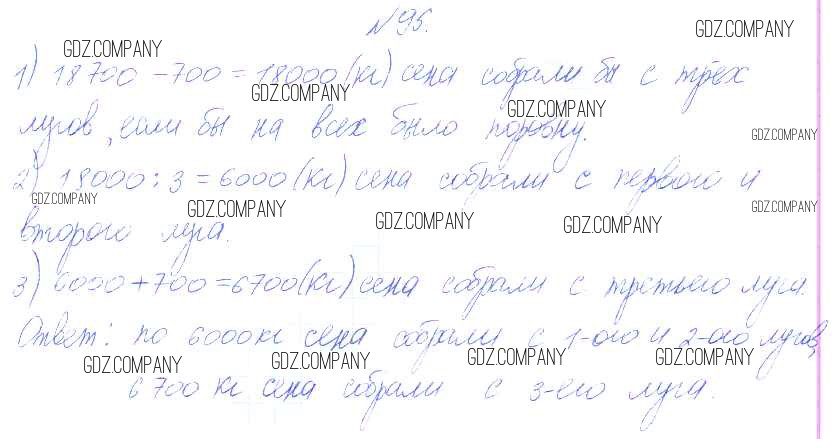 №95.
GDZ.COMPANY
GDZ.COMPANY
1) 18700 - 700 = 18000 (кг) сена собрали бы с трёх
GDZ.COMPANY
GDZ.COMPANY
лугов, если бы на всех было поровну.
GDZ.COMPANY
2) 18000 : 3 = 6000 (кг) сена собрали с первого и
GDZ.COMPANY
GDZ.COMPANY
GDZ.COMPANY
GDZ.COMPANY
GDZ.COMPANY
второго луга.
3) 6000 + 700 = 6700 (кг) сена собрали с третьего луга.
Ответ: по 6000 кг сена собрали с 1-ого и 2-ого лугов,
GDZ.COMPANY
GDZ.COMPANY
GDZ.COMPANY
GDZ.COMPANY
6700 кг сена собрали с 3-его луга.